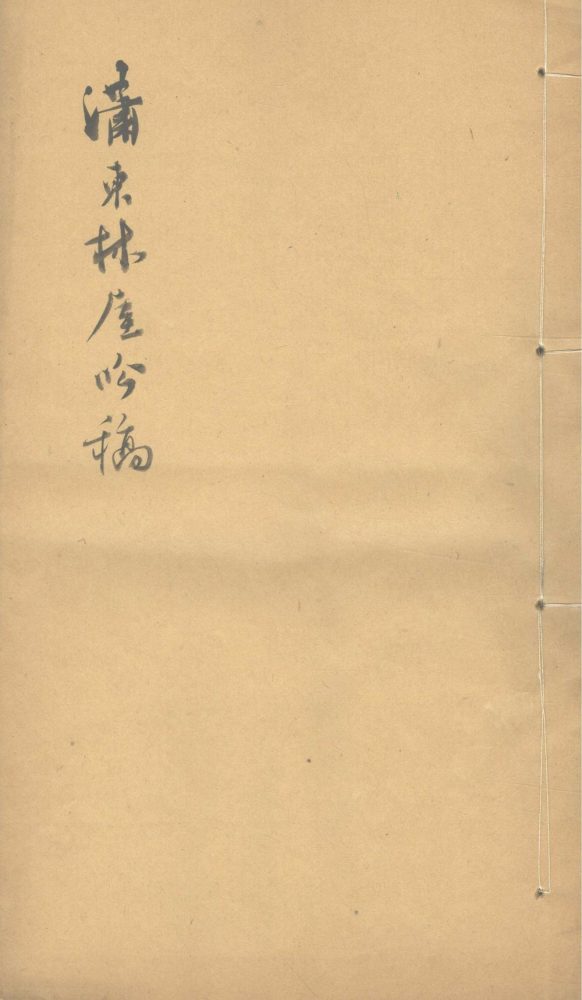 瀟東林屋吟稿